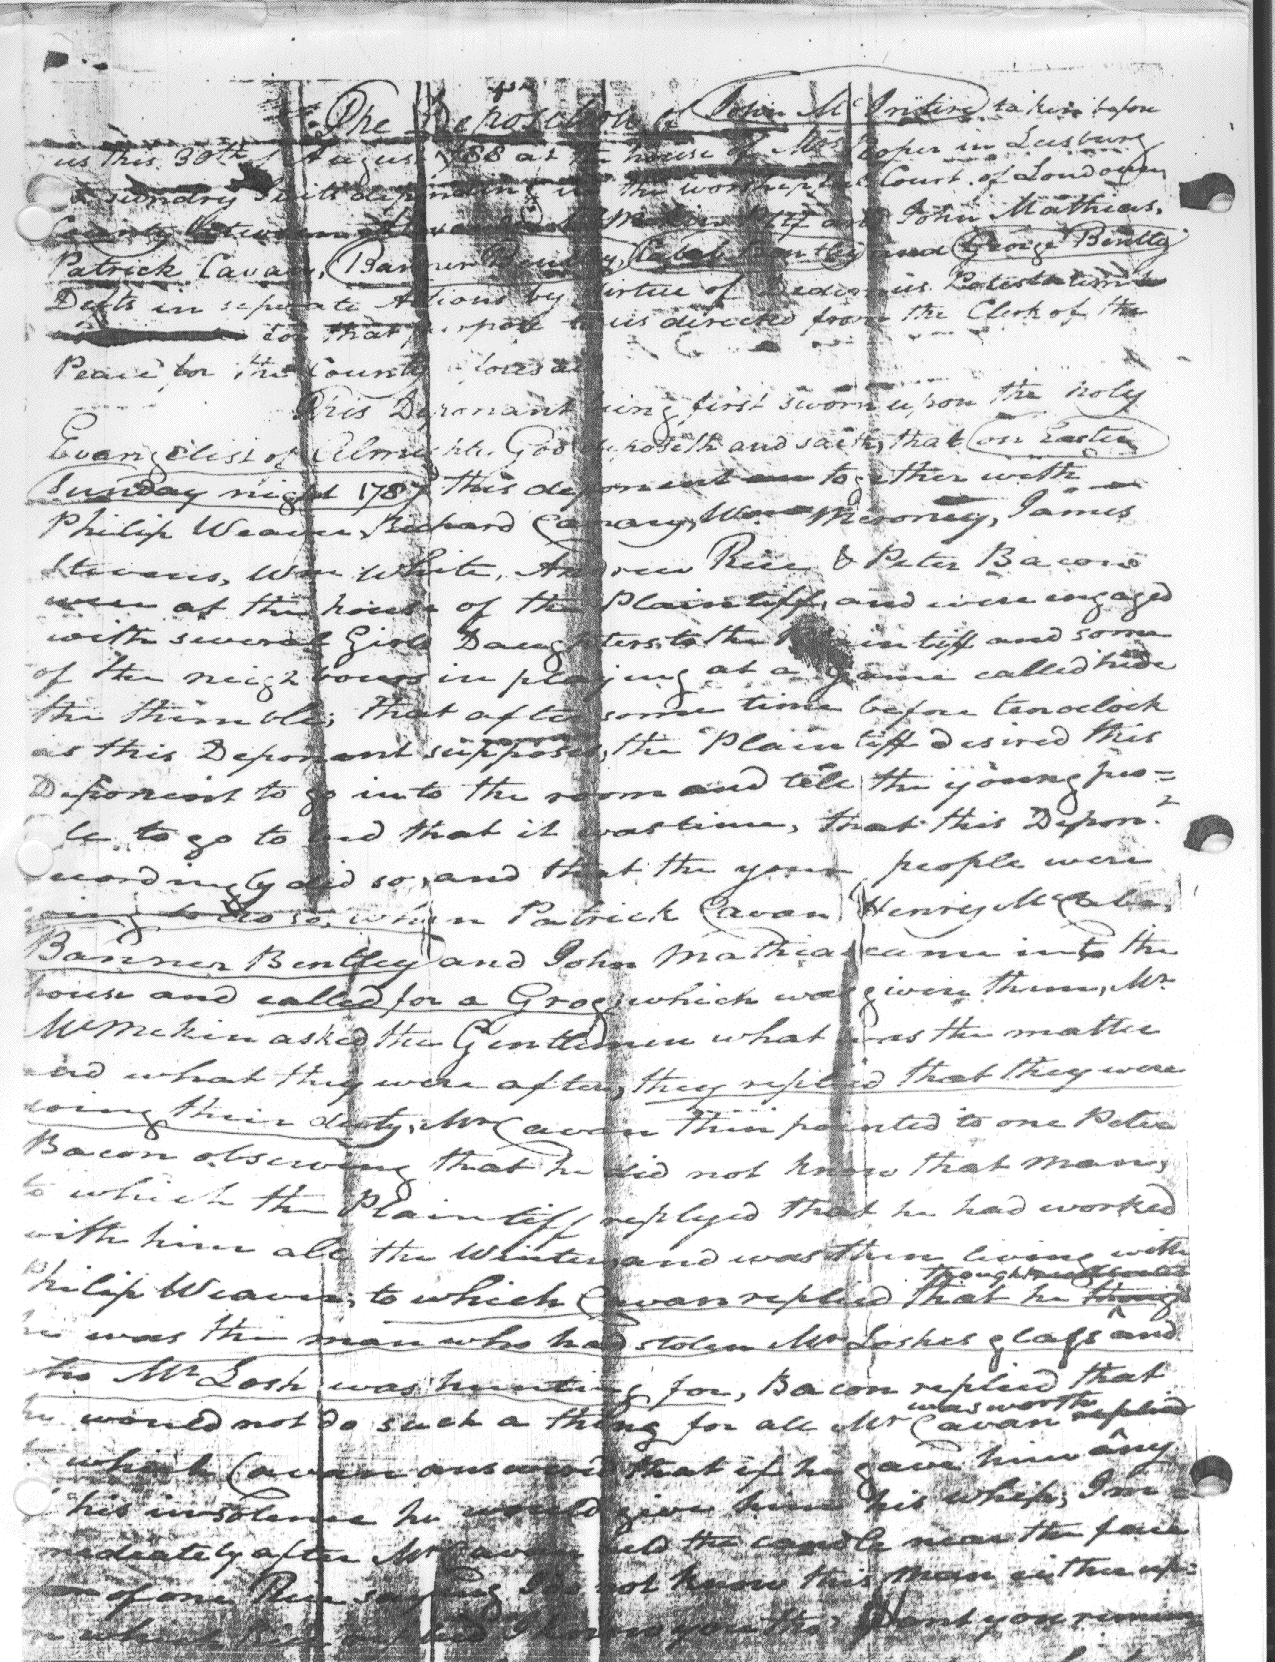 The Deposition of John McIntire taken before
us this 30th of August 1788 at the house of Mrs Roper in Leesburg
sundry Suits depending in the worshipful Court of Loudoun
County Between McMekin Pltf and John Mathias,
Patrick Cavan, Banner Bentley, Caleb Bentley and George Bentley
Defts in seperate Actions by Virtue of Dedimus Potestatem
for that purpose to us directed from the Clerk of the
Peace for the County
This Deponant being first sworn upon the Holy
Evangelist of Almighty God deposeth and saith, that on Easter
Sunday night 1787 this deponent together with
Philip Weaver, Richard Canary, Wm Meroney, James
Stevens, Wm White, Andrew Rice & Peter Bacon
were at the house of the Plaintiff, and were engaged
with several Girls Daughters to the Plaintiff and some
of the neighbours in playing at a game called hide
the thimble; that after some time before tenoclock
as this Deponant supposes, the Plaintiff desired this
Deponent to go into the room and tell the young peo=
le to go to bed that it was time, that this Depont
accordingly did so, and that the young people were
going to do so, when Patrick Cavan, Henry McCabe,
Banner Bentley and John Mathias came into the
house and called for a Grog, which was given them, Mr
McMekin asked the Gentlemen what was the matter
and what they were after, they replied that they were
doing their duty, Mr Cavan then pointed to one Peter
Bacon observing that he did not know that man,
to which the Plaintiff replyed that he had worked
with him all the Winter and was then living with
Philip Weaver, to which Cavan replied that he
he was the man who had stolen Mr Loshes glass and
who Mr Losh was hunting for, Bacon replied that
he would not do such a thing for all Mr Cavan was worth replied
which Cavan answered that if he gave him any
his insolence he would give him his whip, Im=
mediately after Mr Cavan held the candle near the face
of one Rice saying I do not know this man either up=
which Rice replied I know you tho' Dont you remem